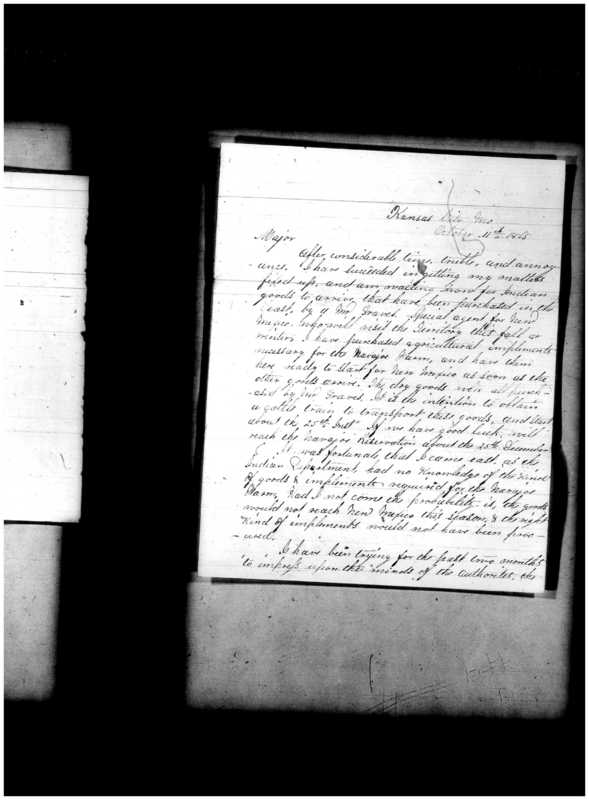 Kansas City Mo
October 11th 1865
Major
After considerable time, trouble, and annoy
ance. I have succeeded in getting my matters
fixed up, and am waiting now for Indian
goods to arrive, that have been purchased in the
east, by Mr. Graves Special agent for New
Mexico. will visit the Territory this fall or
winter. I have purchased agricultural impliments
necessary for the Navajoe Farm, and have them
here ready to start for New Mexico as soon as the
other goods arrive. The dry goods were all purch-
ased by Mr Graves. It is the intention to obtain
a train to transport these goods, and start
about the 25th Inst. If we have good luck, will
reach the Navajoe Reservation about the 25th December
It was fortunate, that I came east, as the
Indian Department, had no knowledge of the kind
of goods & implements required for the Navajoe
Farm, had I not come the probibility is, the goods
would not reach New Mexico this season, & the right
kind of impliments would not have been proc-
-ured.
I have been trying for the past two months
to impress upon the minds of the authorites, the